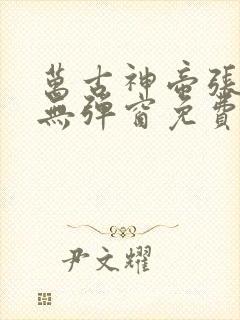 萬古神帝張
無彈窗免費
尹文耀